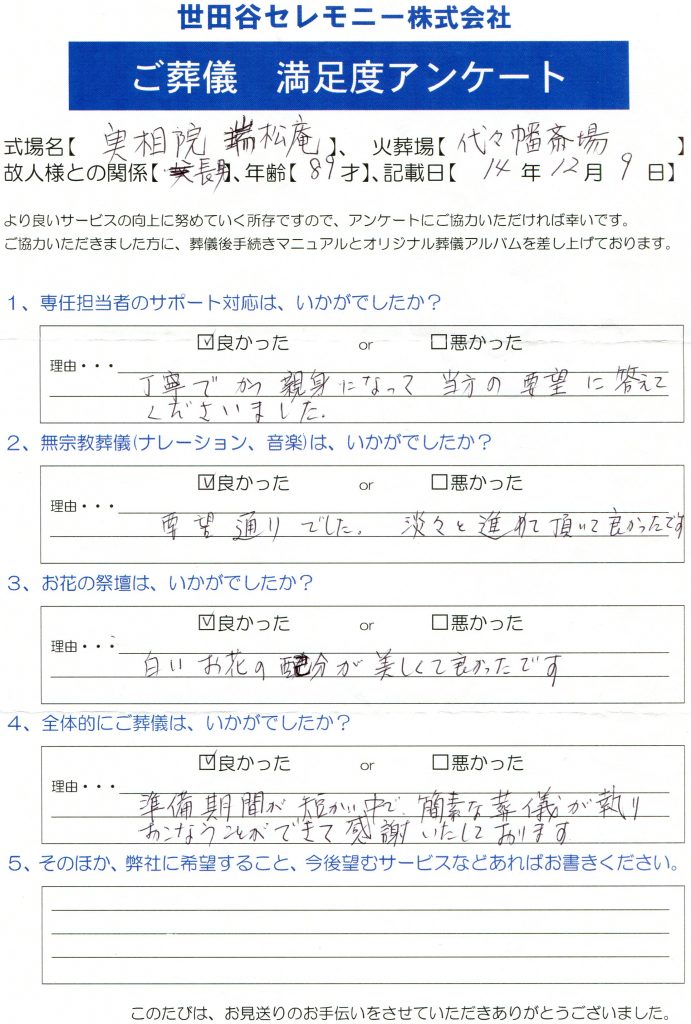 世田谷セレモニー株式会社
ご葬儀 満足度アンケート
式場名【 実相院 瑞松庵 】、 火葬場【 代々幡斎場 】
故人様との関係【 長男 】、年齢【 89 才】、記載日【 14 年 12 月 9 日】
より良いサービスの向上に努めていく所存ですので、アンケートにご協力いただければ幸いです。
ご協力いただきました方に、葬儀後手続きマニュアルとオリジナル葬儀アルバムを差し上げております。
1、専任担当者のサポート対応は、いかがでしたか？
☑良かった or □悪かった
理由・・・
丁寧でかつ親身になって 当方の要望に答えて
くださいました.
2、無宗教葬儀(ナレーション、音楽)は、いかがでしたか？
☑良かった or □悪かった
理由・・・
要望通りでした. 淡々と進めて頂いて良かったです
3、お花の祭壇は、いかがでしたか？
☑良かった or □悪かった
理由・・・
白いお花の配分が美しくて良かったです
4、全体的にご葬儀は、いかがでしたか？
☑良かった or □悪かった
理由・・・
準備期間が短かい中で、簡素な葬儀が執り
おこなうことができて感謝いたしております
5、そのほか、弊社に希望すること、今後望むサービスなどあればお書きください。
このたびは、お見送りのお手伝いをさせていただきありがとうございました。